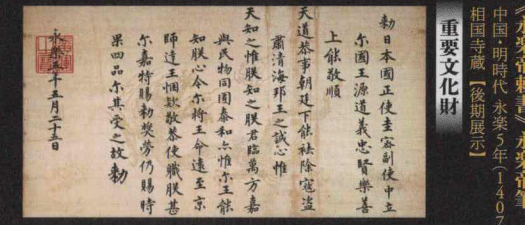 《永楽帝勅書》永楽帝筆
中国・明時代 永楽5年(1407
相国寺蔵【後期展示】
重要文化財
勅日本國正使圭密副使中立
尔國王源道義忠賢樂善
上能敬順
天道恭事朝廷下能祛除寇盜
肅清海邦王之誠心惟
天知之惟朕知之朕君臨萬方嘉
與民物同囿泰和亦惟尔王能
知朕心今尔將王命遠至京
師達王悃欵敬恭使職朕甚
尔嘉特賜勅獎勞仍賜時
果四品尔其受之故勅
永樂五年五月二十五日